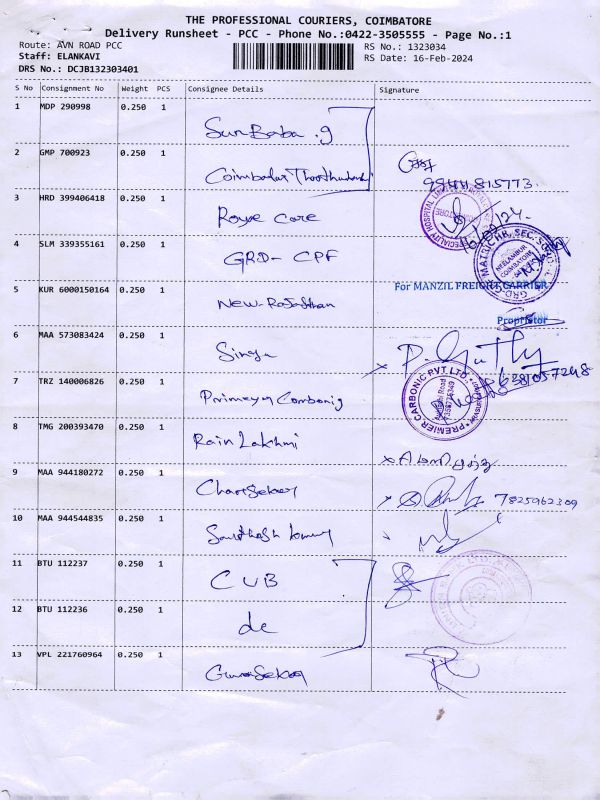 THE PROFESSIONAL COURIERS, COIMBATORE
Delivery Runsheet - PCC - Phone No.:0422-3505555 - Page No.:1
Route: AVN ROAD PCC
RS No.: 1323034
Staff: ELANKAVI
RS Date: 16-Feb-2024
DRS No.: DCJB132303401
S No Consignment No Weight PCS Consignee Details Signature
1 MDP 290998 0.250 1
Sun Baba .g
2 GMP 700923 0.250 1
Coimbatar
9944815773.
3 HRD 399406418 0.250 1
Royse Care
16/02/24.
4 SLM 339355161 0.250 1
GRD- CPF
5 KUR 6000150164 0.250 1
New-Rajasthan
For MANZIL FREIGHT CARRIER
Proprietor
6 MAA 573083424 0.250 1
Singu
7 TRZ 140006826 0.250 1
PREMIER CARBONIC PVT LTD.
8 TMG 200393470 0.250 1
Rain Lakhmi
9 MAA 944180272 0.250 1
7825962309
10 MAA 944544835 0.250 1
11 BTU 112237 0.250 1
CUB
12 BTU 112236 0.250 1
do
13 VPL 221760964 0.250 1
GunaSekar